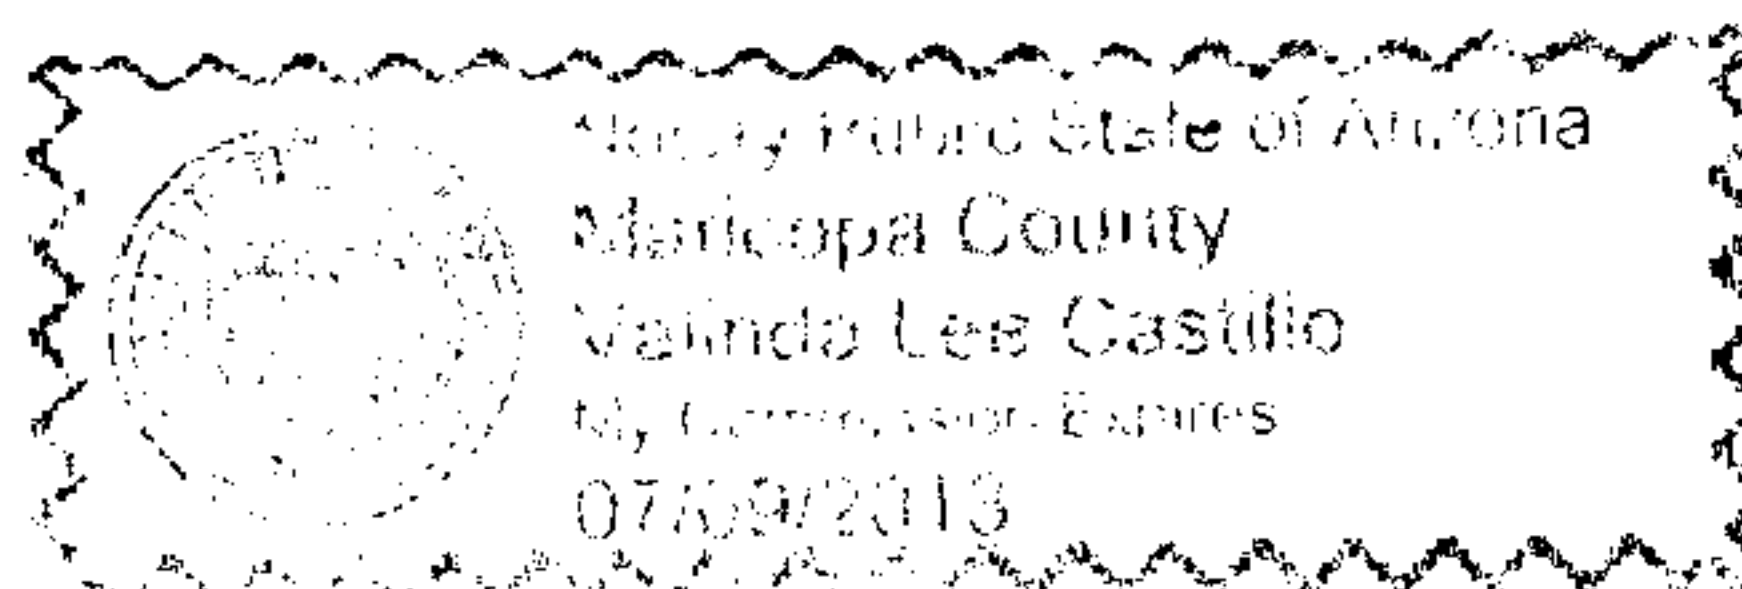 Notary Public State of Arizona
Maricopa County
Valinda Lee Castillo
My Commission Expires
07/09/2013